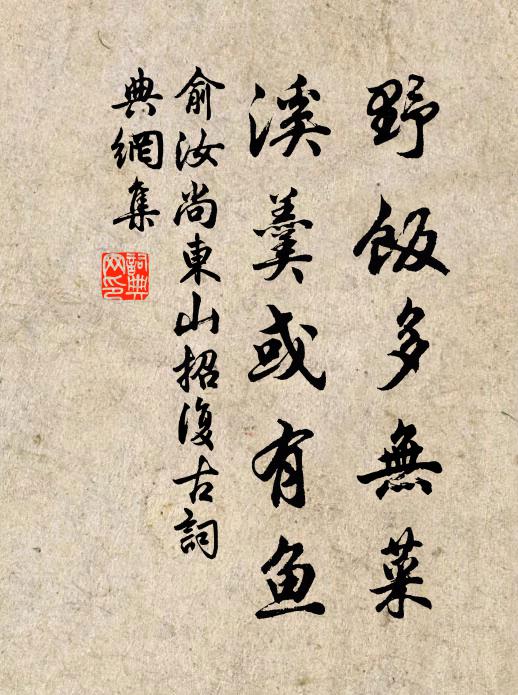 野飯多無菜
溪羹或有鱼
俞汝尚東山招復古詞
典網集
詞典
网印